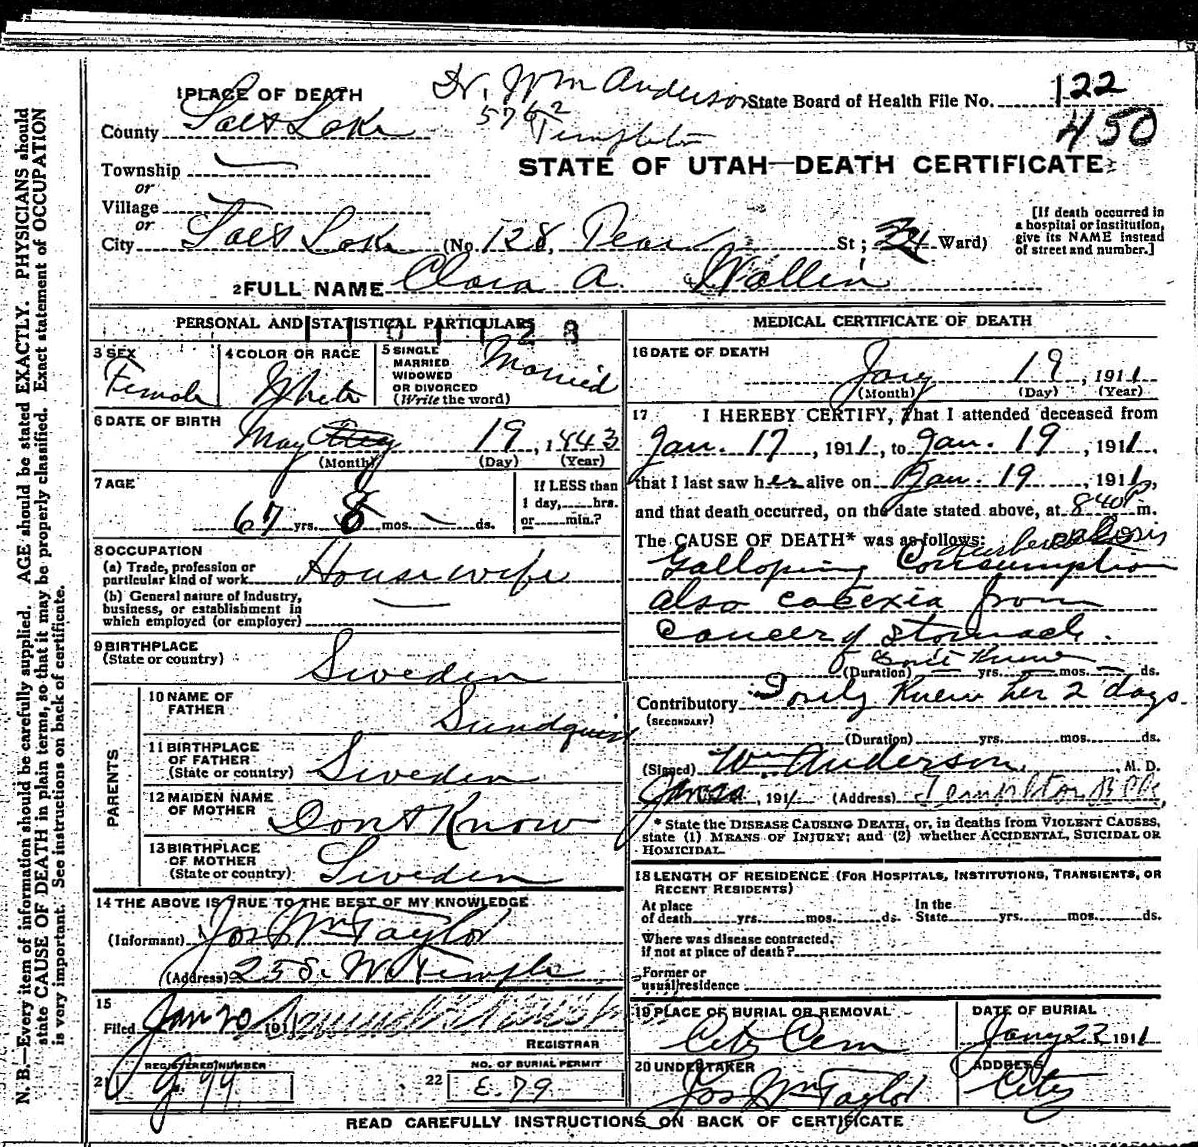 Dr. Wm Anderson
5762
Templeton
1 PLACE OF DEATH
State Board of Health File No. 122
450
County Salt Lake
STATE OF UTAH—DEATH CERTIFICATE
Township
or
Village
or
City Salt Lake (No. 128, Pearl St; Ward)
[If death occurred in a hospital or institution, give its NAME instead of street and number.]
2 FULL NAME Clara A. Wallin
PERSONAL AND STATISTICAL PARTICULARS
3 SEX
Female
4 COLOR OR RACE
White
5 SINGLE
MARRIED
WIDOWED
OR DIVORCED
(Write the word)
Married
6 DATE OF BIRTH
May 19, 1843
(Month) (Day) (Year)
7 AGE
67 yrs. 8 mos. — ds.
If LESS than
1 day, hrs.
or min.?
8 OCCUPATION
(a) Trade, profession or
particular kind of work
Housewife
(b) General nature of industry,
business, or establishment in
which employed (or employer)
9 BIRTHPLACE
(State or country)
Sweden
PARENTS
10 NAME OF
FATHER
Sundquist
11 BIRTHPLACE
OF FATHER
(State or country)
Sweden
12 MAIDEN NAME
OF MOTHER
Dont Know
13 BIRTHPLACE
OF MOTHER
(State or country)
Sweden
14 THE ABOVE IS TRUE TO THE BEST OF MY KNOWLEDGE
(Informant) Jos Wm Taylor
(Address) 25 S. W. Temple
15
Filed Jan 20 1911
REGISTRAR
21 REGISTERED NUMBER
22 NO. OF BURIAL PERMIT
E. 79
MEDICAL CERTIFICATE OF DEATH
16 DATE OF DEATH
Jany 19, 1911
(Month) (Day) (Year)
17 I HEREBY CERTIFY, That I attended deceased from
Jan. 17, 1911, to Jan. 19, 1911.
that I last saw her alive on Jan. 19, 1911,
and that death occurred, on the date stated above, at 8 40 P m.
The CAUSE OF DEATH* was as follows:
Galloping Consumption
also cacexia from
Cancer of Stomach.
(Duration) Dont Know yrs. mos. ds.
Contributory I only Knew her 2 days
(SECONDARY)
(Duration) yrs. mos. ds.
(Signed) Wm Anderson, M. D.
, 1911 (Address) Templeton
* State the DISEASE CAUSING DEATH, or, in deaths from VIOLENT CAUSES, state (1) MEANS OF INJURY; and (2) whether ACCIDENTAL, SUICIDAL OR HOMICIDAL.
18 LENGTH OF RESIDENCE (FOR HOSPITALS, INSTITUTIONS, TRANSIENTS, OR RECENT RESIDENTS)
At place
of death yrs. mos. ds.
In the
State yrs. mos. ds.
Where was disease contracted,
if not at place of death?
Former or
usual residence
19 PLACE OF BURIAL OR REMOVAL
City Cem
DATE OF BURIAL
Jany 22, 1911
20 UNDERTAKER
Jos Wm Taylor
ADDRESS
City
READ CAREFULLY INSTRUCTIONS ON BACK OF CERTIFICATE
N. B.—Every item of information should be carefully supplied. AGE should be stated EXACTLY. PHYSICIANS should
state CAUSE OF DEATH in plain terms, so that it may be properly classified. Exact statement of OCCUPATION
is very important. See instructions on back of certificate.